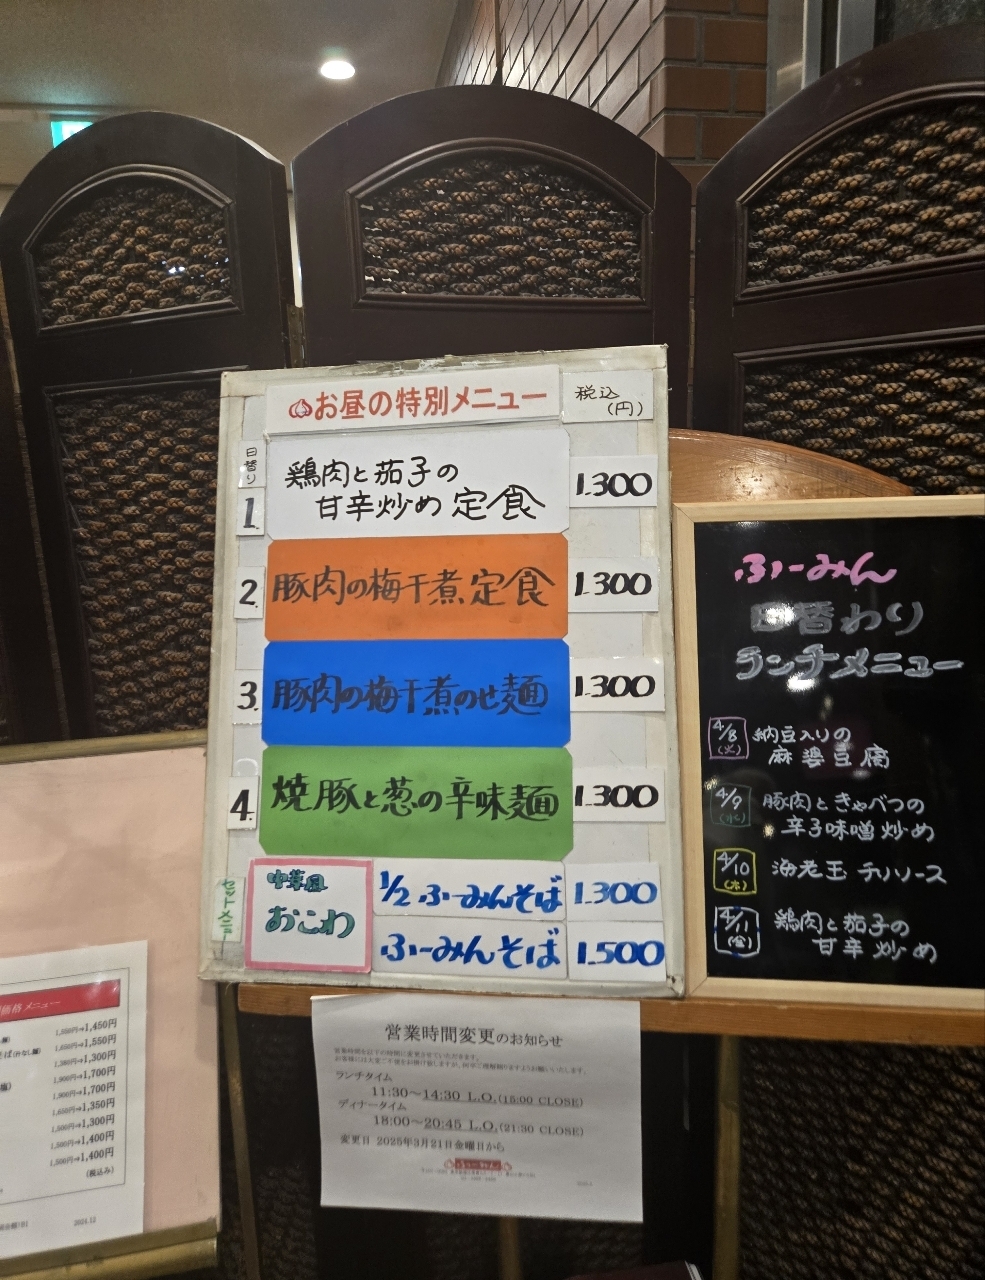 お昼の特別メニュー
税込
(円)
日替り
1.
鶏肉と茄子の
甘辛炒め 定食
1.300
2.
豚肉の梅干煮定食
1.300
3.
豚肉の梅干煮のせ麺
1.300
4.
焼豚と葱の辛味麺
1.300
セットメニュー
中華風
おこわ
1/2 ふーみんそば
1.300
ふーみんそば
1.500
ふーみん
日替わり
ランチメニュー
4/8
(火)
納豆入りの
麻婆豆腐
4/9
(水)
豚肉ときゃべつの
辛子味噌炒め
4/10
(木)
海老玉チリソース
4/11
(金)
鶏肉と茄子の
甘辛炒め
価格メニュー
1,450円
1,550円
1,300円
1,700円
1,700円
1,350円
1,300円
1,400円
1,400円
(税込み)
2024.12
営業時間変更のお知らせ
営業時間を以下の時間に変更させていただきます。
ランチタイム
11:30～14:30 L.O.(15:00 CLOSE)
ディナータイム
18:00～20:45 L.O.(21:30 CLOSE)
変更日 2025年3月21日金曜日から
ふーみん